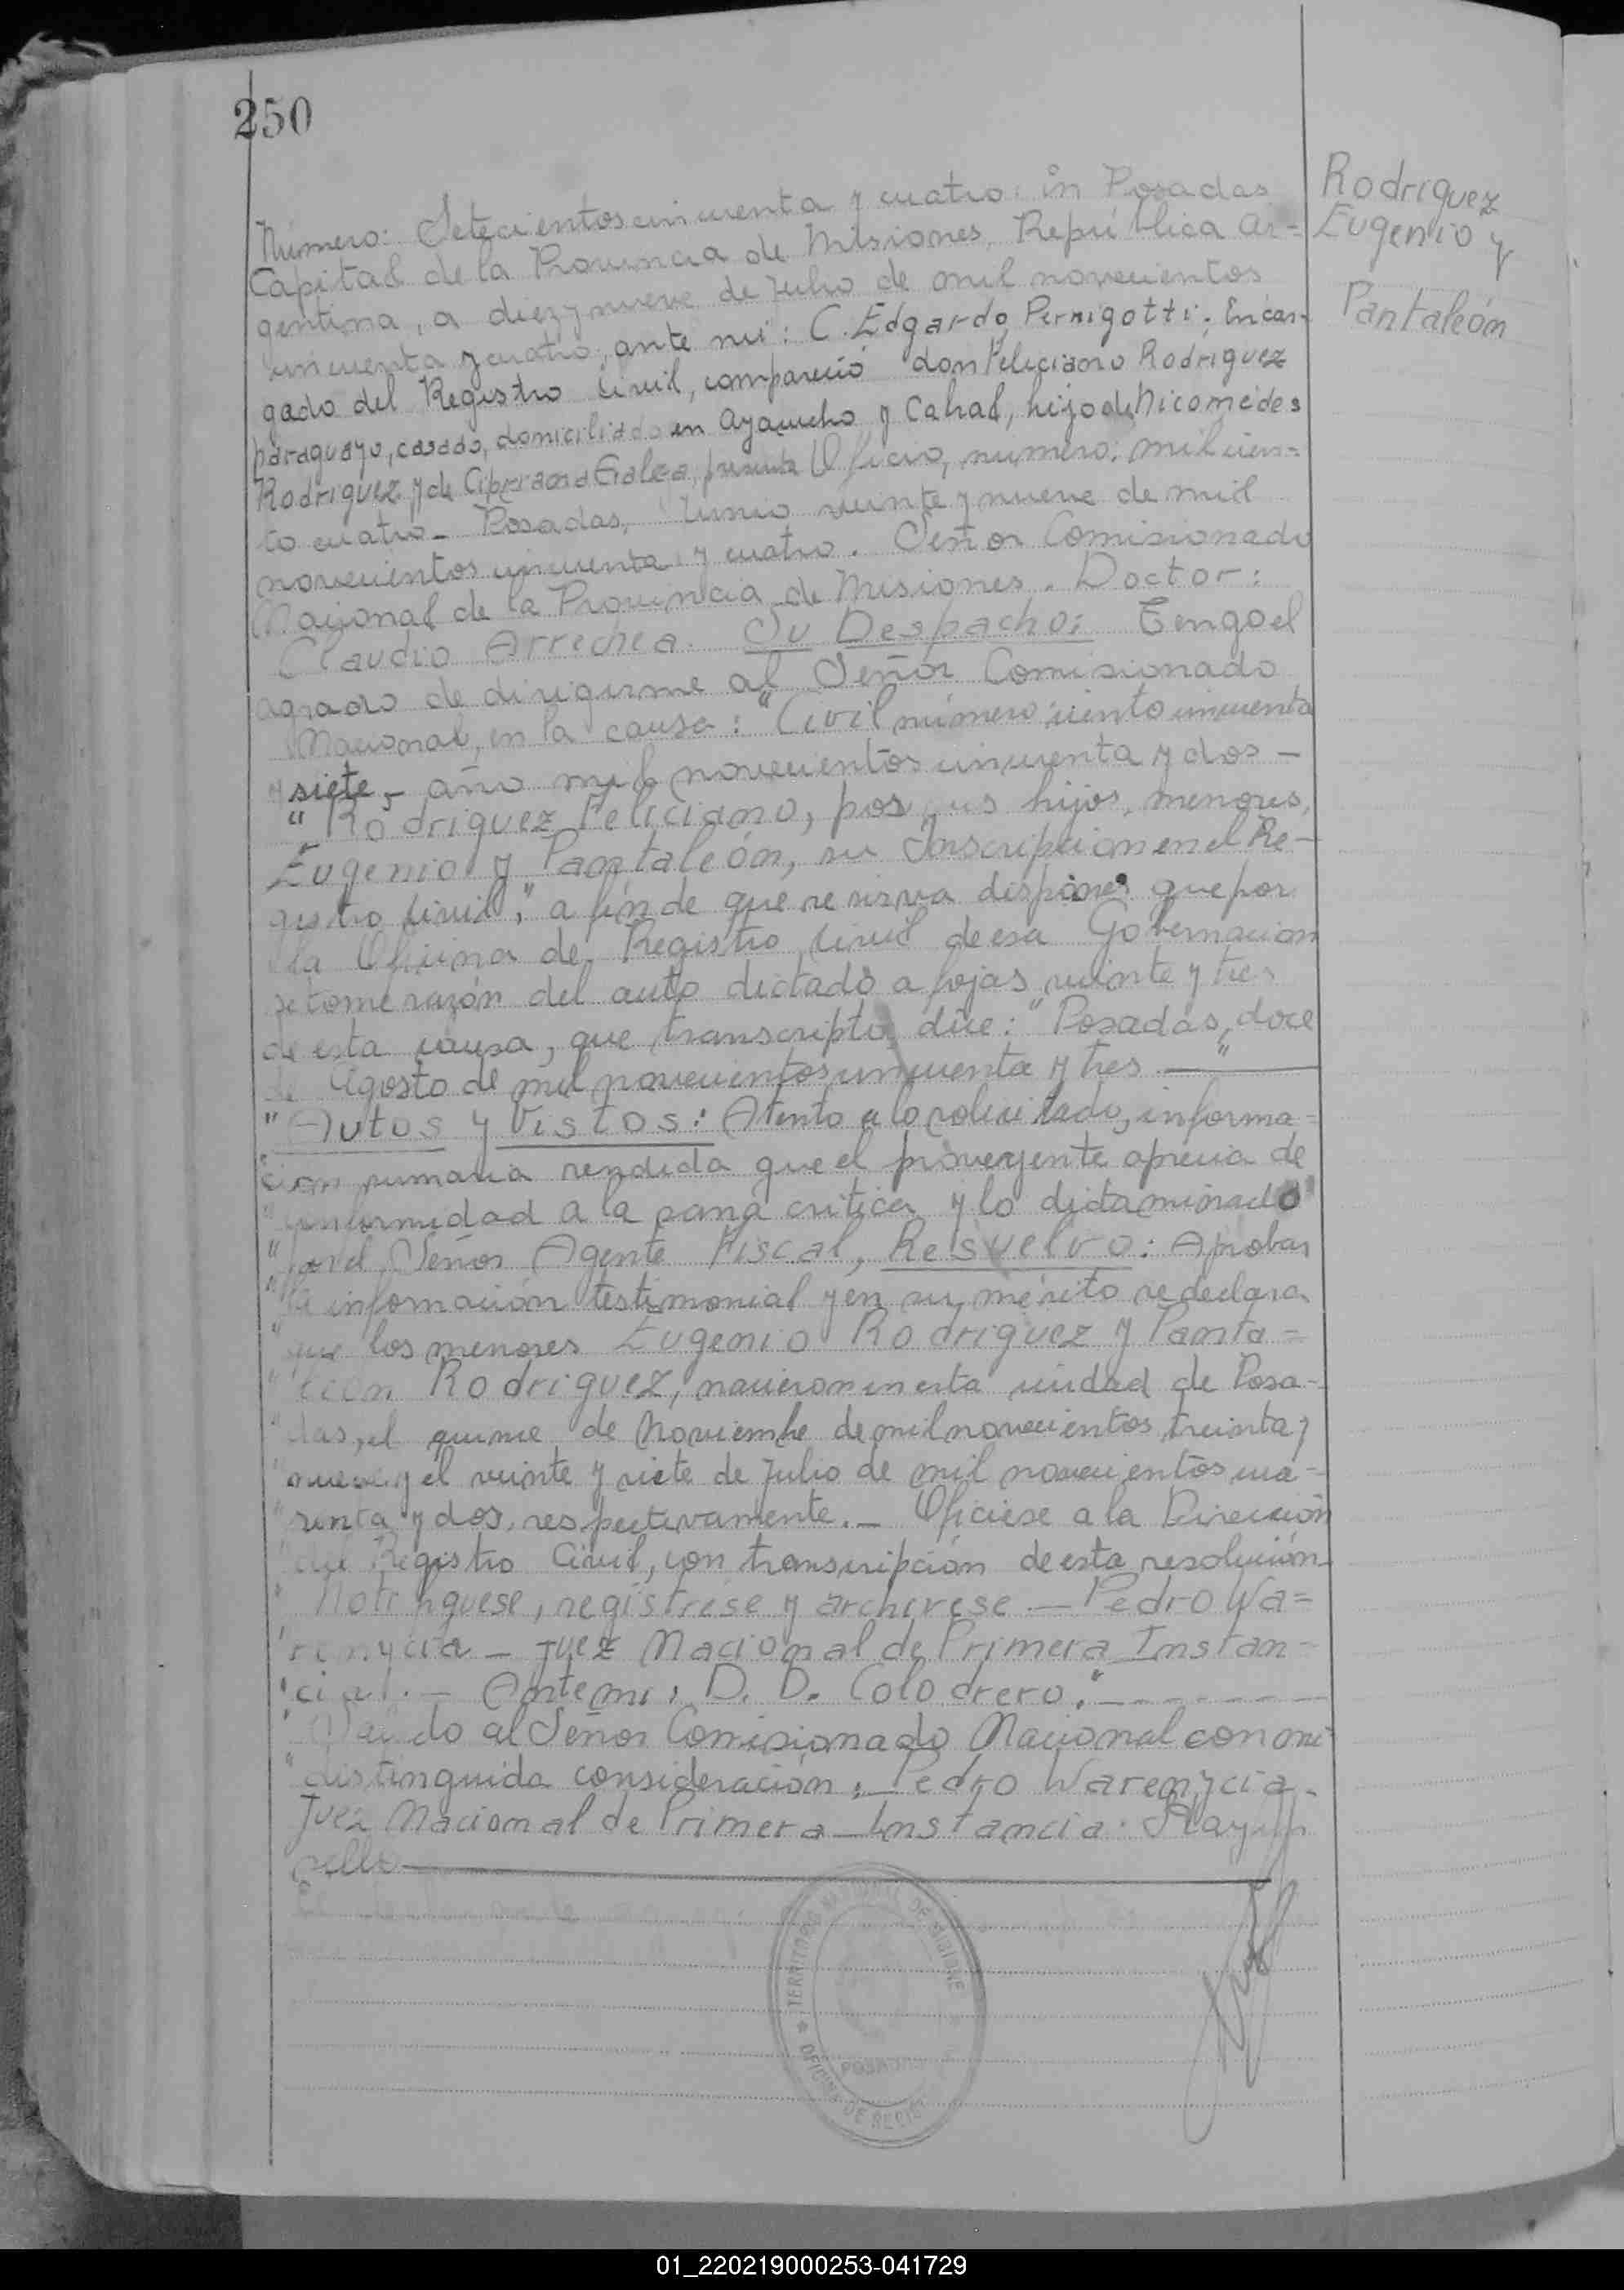 250
Número: Setecientos cincuenta y cuatro: in Posadas
Capital de la Provincia de Misiones, República Ar=
gentina, a diez y nueve de Julio de mil novecientos
cincuenta y cuatro, ante mi: C. Edgardo Pernigotti. Encar-
gado del Registro Civil, compareció don Feliciano Rodriguez
paraguayo, casado, domiciliado en Ayacucho y Cabral, hijo de Nicomédes
Rodriguez y de Cipriana Galeza, presenta Oficio, número: mil cien=
to cuatro_ Posadas, Junio veinte y nueve de mil
novecientos cincuenta y cuatro. Señor Comisionado
Nacional de la Provincia de Misiones. Doctor:
Claudio Arrechea. Su Despacho: Tengo el
agrado de dirigirme al Señor Comisionado
Nacional, en la causa: "Civil número ciento cincuenta
y siete,- año mil novecientos cincuenta y dos -
"Rodriguez Feliciano, por sus hijos, menores,
Eugenio y Pantaleón, su Inscripcion en el Re-
gistro Civil", a fin de que se sirva disponer que por
la Oficina de Registro Civil de esa Gobernacion
se tome razón del auto dictado a fojas veinte y tres
de esta causa, que transcripto, dice: "Posadas, doce
de Agosto de mil novecientos cincuenta y tres."
"Autos y Vistos: Atento a lo solicitado, informa=
cion sumaria rendida que el proveyente aprecia de
"conformidad a la sana critica y lo dictaminado
"por el Señor Agente Fiscal, Resuelvo: Aprobar
"la información testimonial y en su mérito se declara
"que los menores Eugenio Rodriguez y Panta=
"león Rodriguez, nacieron en esta ciudad de Posa-
"das, el quince de Noviembre de mil novecientos treinta y
"nueve y el veinte y siete de Julio de mil novecientos cua-
"renta y dos, respectivamente._ Ofíciese a la Dirección
"del Registro Civil, con transcripción de esta resolución
"Notifíquese, regístrese y archívese._ Pedro Wa=
"renycia_ Juez Nacional de Primera Instan=
"cia.- Ante mi: D. D. Colodrero."
"Saludo al Señor Comisionado Nacional con mi
"distinguida consideración._ Pedro Warenycia.
Juez Nacional de Primera Instancia. Hay un
sello
Rodriguez
Eugenio y
Pantaleón
TERRITORIO NACIONAL DE MISIONES
POSADAS
OFICINA DE REGIST
01_220219000253-041729